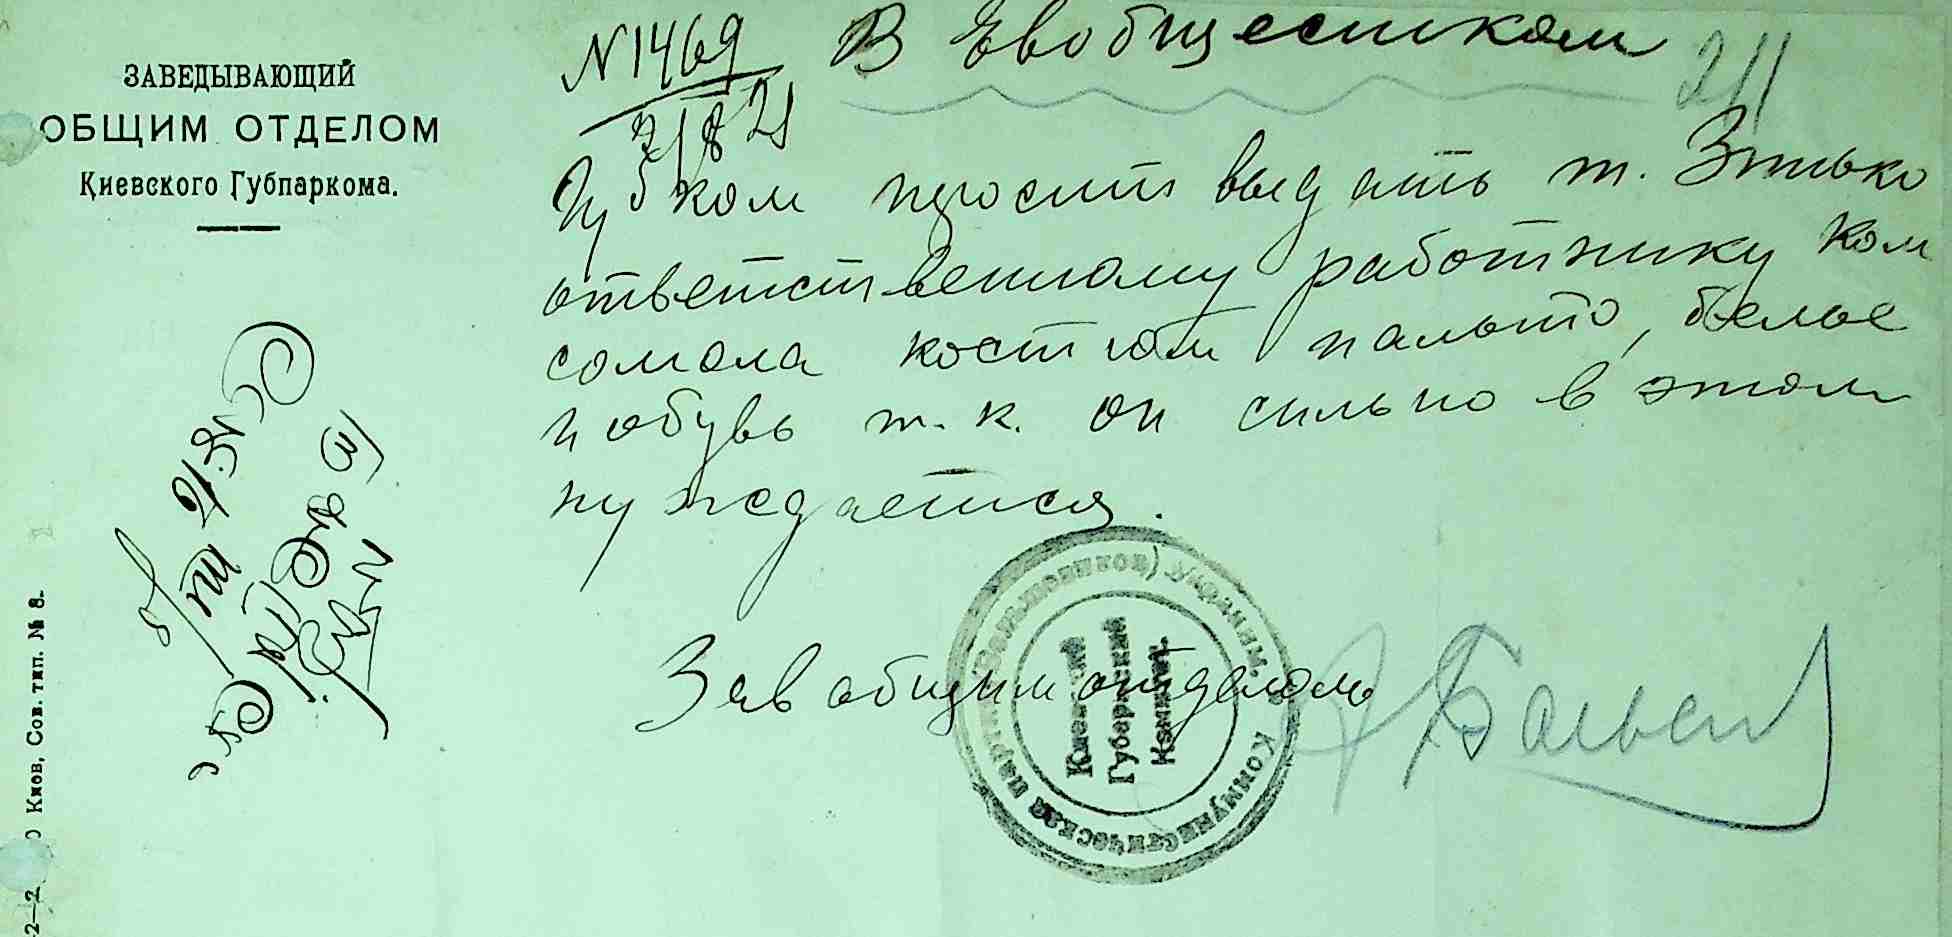 ЗАВЕДЫВАЮЩИЙ
ОБЩИМ ОТДЕЛОМ
Киевского Губпаркома.
N1469
2/8 21
В Евобщестком
211
Губком просит выдать т. Зтько
ответственному работнику Ком
сомола костюм пальто, белье
и обувь т. к. он сильно в этом
нуждается.
Зав общим отделом
Коммунистическая партия (Большевиков) Украины.
Киевский
Губернский
Комитет.
Киев, Сов. тип. № 8.